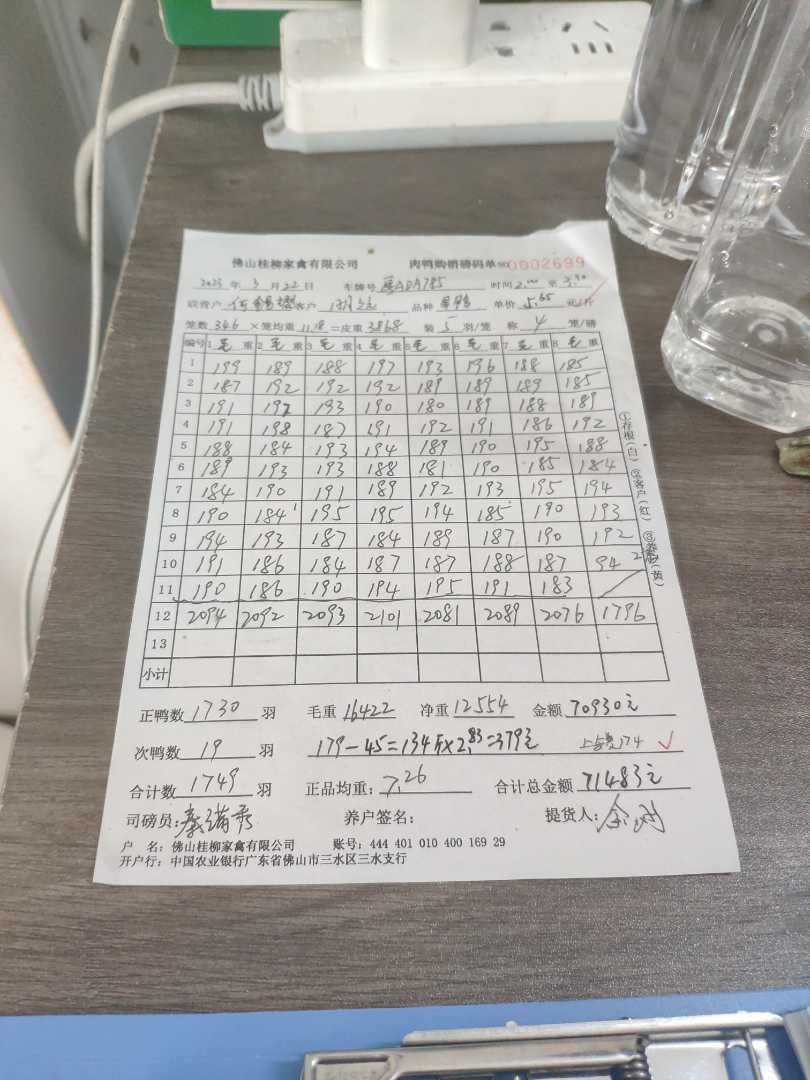 佛山桂柳家禽有限公司 肉鸭购销磅码单 NO 0002699
2023 年 3 月 22 日 车牌号 ADA785 时间 2.00 至 3.30
联营户 何 客户 品种 单价 5.65 元/斤
笼数 346 × 笼均重 11.18 = 皮重 3868 装 5 羽/笼 称 4 笼/磅
编号 1 毛 重 2 毛 重 3 毛 重 4 毛 重 5 毛 重 6 毛 重 7 毛 重 8 毛 重
1 199 189 188 197 193 196 188 185
2 187 192 192 192 189 189 189 185
3 191 192 193 190 180 189 188 189
4 191 198 187 191 192 191 186 192
5 188 184 193 194 189 190 195 188
6 189 193 193 188 181 190 185 184
7 184 190 191 189 192 193 195 194
8 190 184 195 195 194 185 190 193
9 194 193 187 184 189 187 190 192
10 191 186 184 187 187 188 187 94
11 190 186 190 194 195 191 183
12 2094 2092 2093 2101 2081 2089 2076 1796
13
小计
①存根(白) ②客户(红) ③养户(黄)
正鸭数 1730 羽 毛重 16422 净重 12554 金额 70930元
次鸭数 19 羽 179-45=134斤×2.83=379元 174
合计数 1749 羽 正品均重: 7.26 合计总金额 71483元
司磅员: 养户签名: 提货人:
户 名: 佛山桂柳家禽有限公司 账号: 444 401 010 400 169 29
开户行: 中国农业银行广东省佛山市三水区三水支行